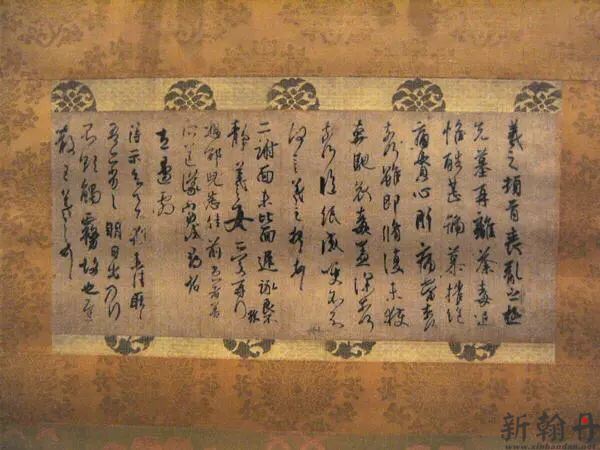 羲之頓首喪亂之極
先墓再離荼毒追
惟酷甚號慕摧絕
痛貫心肝痛當奈何
奈何雖即脩復未獲
奔馳哀毒益深奈何
奈何臨紙感哽不知
何言羲之頓首頓首
二謝面未比面遲詠良不
靜羲之女愛再拜
想邵兒悉佳前患者善
左邊劇
得示知足下猶未佳耿耿
吾亦劣劣明日出乃行
不欲觸霧故也遲
散王羲之頓首
新翰丹
www.xinhandan.net